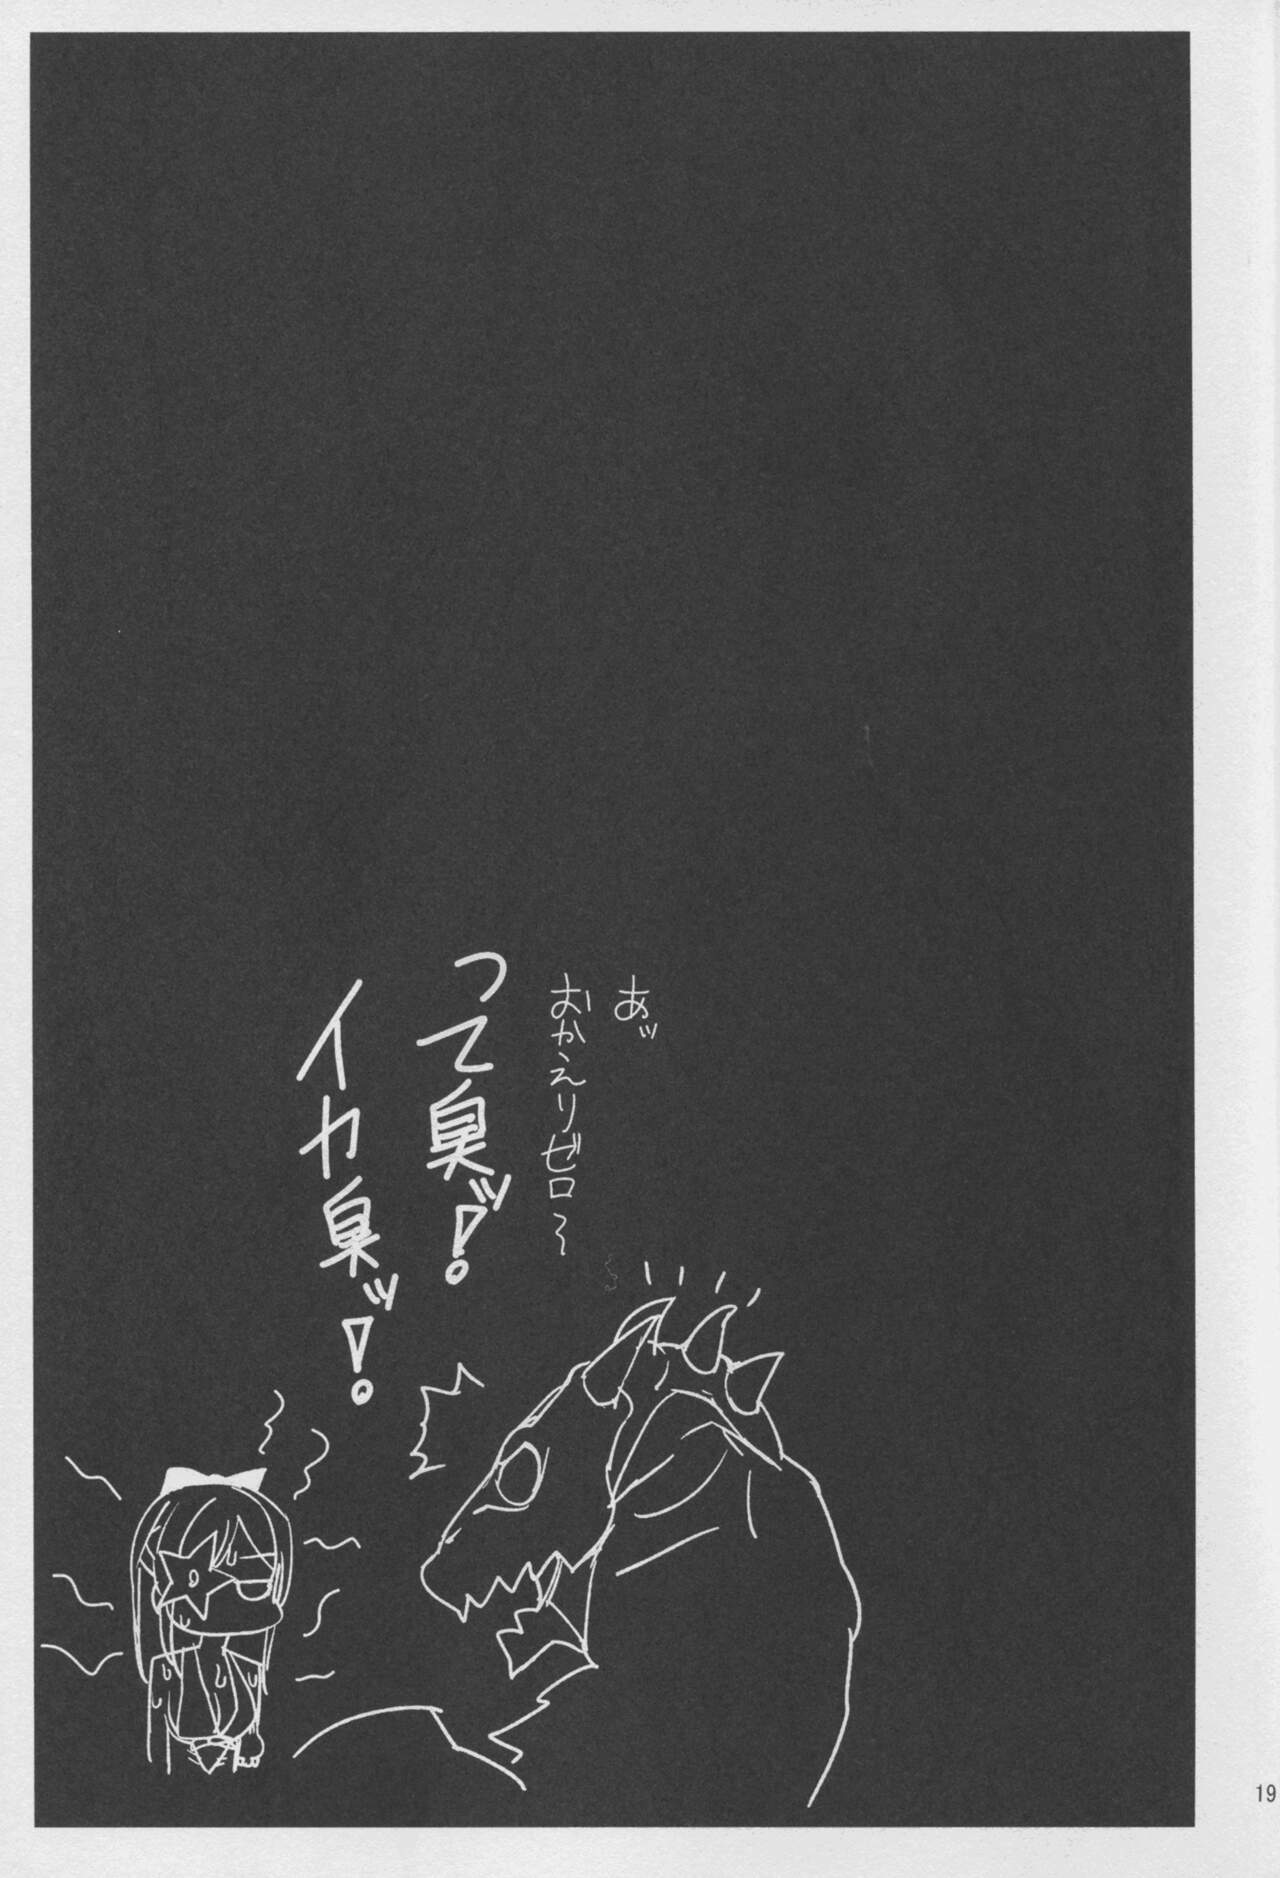 あッ
おかえりゼロ～
って臭ッ！
イカ臭ッ！
19